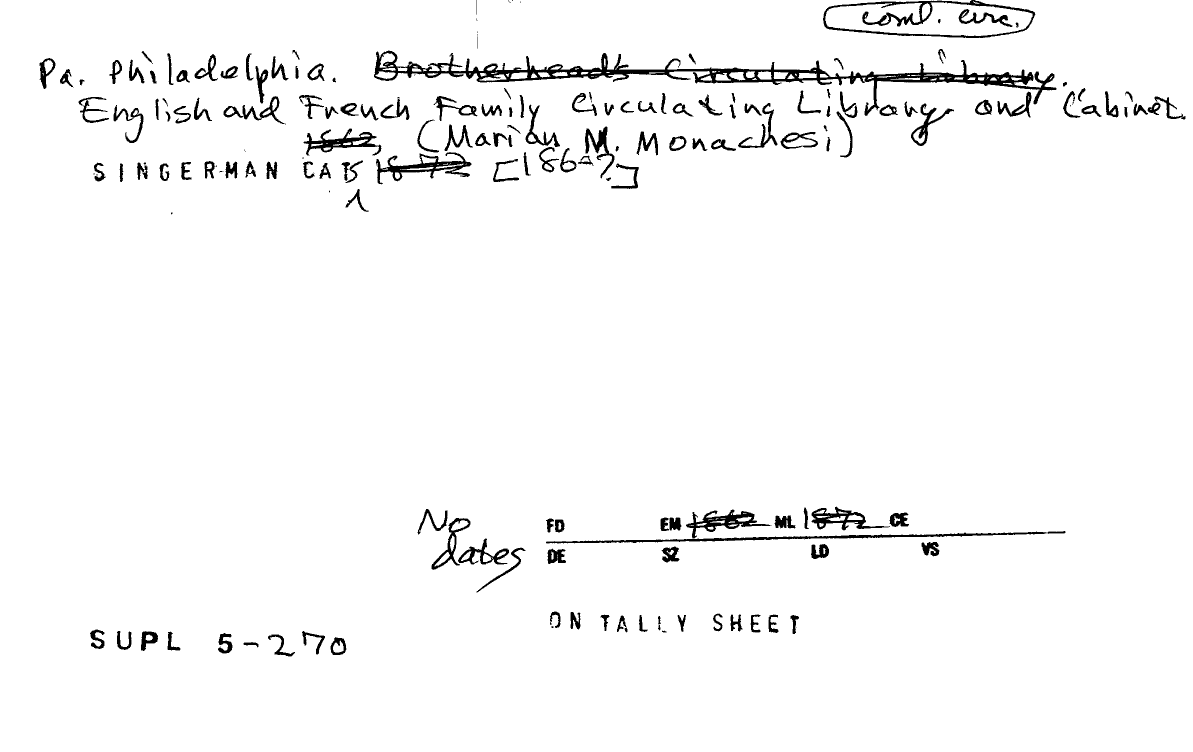 coml. circ.
Pa. Philadelphia. Brotherhead's Circulating Library.
English and French Family Circulating Library and Cabinet.
1862, (Marian M. Monachesi)
SINGERMAN CATS 1872 [186-?]
No dates
FD EM 1862 ML 1872 CE
DE SZ LD VS
ON TALLY SHEET
SUPL 5-270